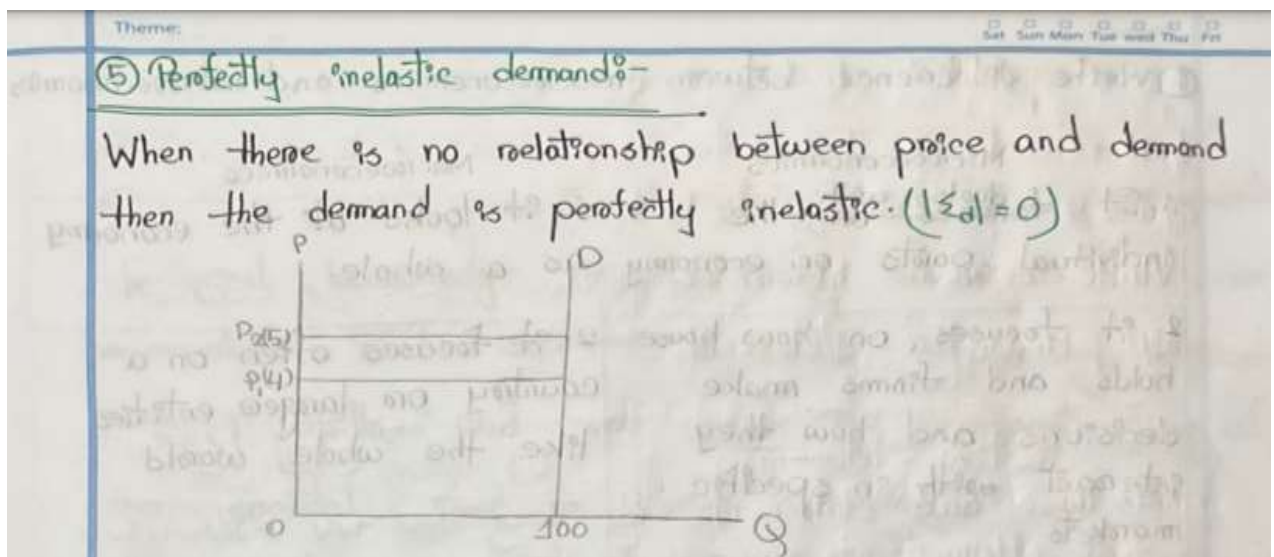 Theme:
Sat Sun Mon Tue Wed Thu Fri
⑤ Perfectly inelastic demand:-
When there is no relationship between price and demand
then the demand is perfectly inelastic. (|Σd| = 0)
P
D
P₂(5)
P₁(4)
0
100
Q